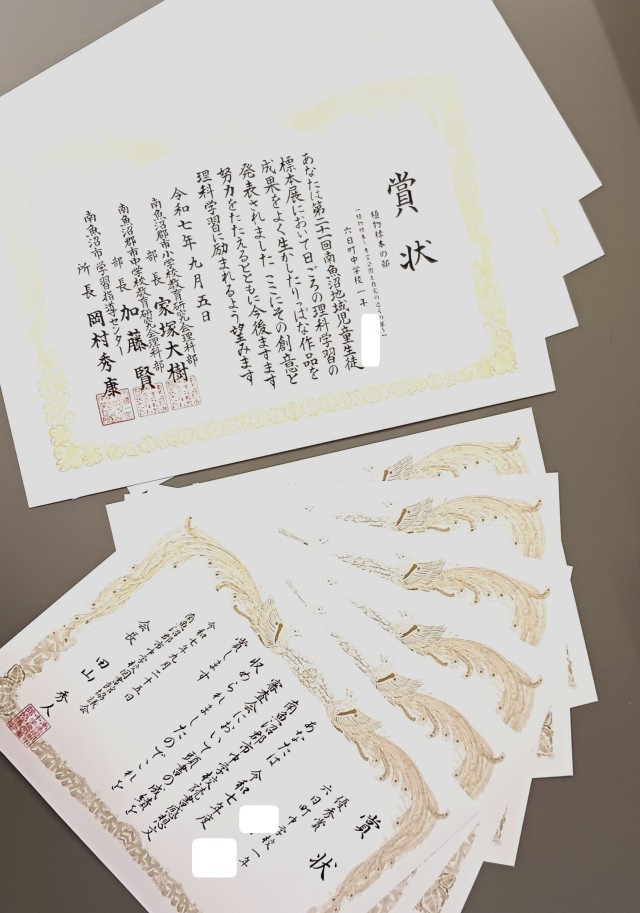 賞状
植物標本の部
六日町中学校一年
あなたは第二十一回南魚沼地域児童生徒
標本展において日ごろの理科学習の
成果をよく生かしたりっぱな作品を
発表されました ここにその創意と
努力をたたえるとともに今後ますます
理科学習に励まれるよう望みます
令和七年九月五日
南魚沼郡市小学校教育研究会理科部
部長 家塚大樹
南魚沼郡市中学校教育研究会理科部
部長 加藤賢
南魚沼市学習指導センター
所長 岡村秀康
賞状
優秀賞
六日町中学校一年
あなたは 令和七年度
南魚沼郡市中学校読書感想文
審査会において頭書の成績を
収められましたのでこれを
賞します
令和七年九月二十五日
南魚沼郡市中学校図書館協議会
会長 田山秀人